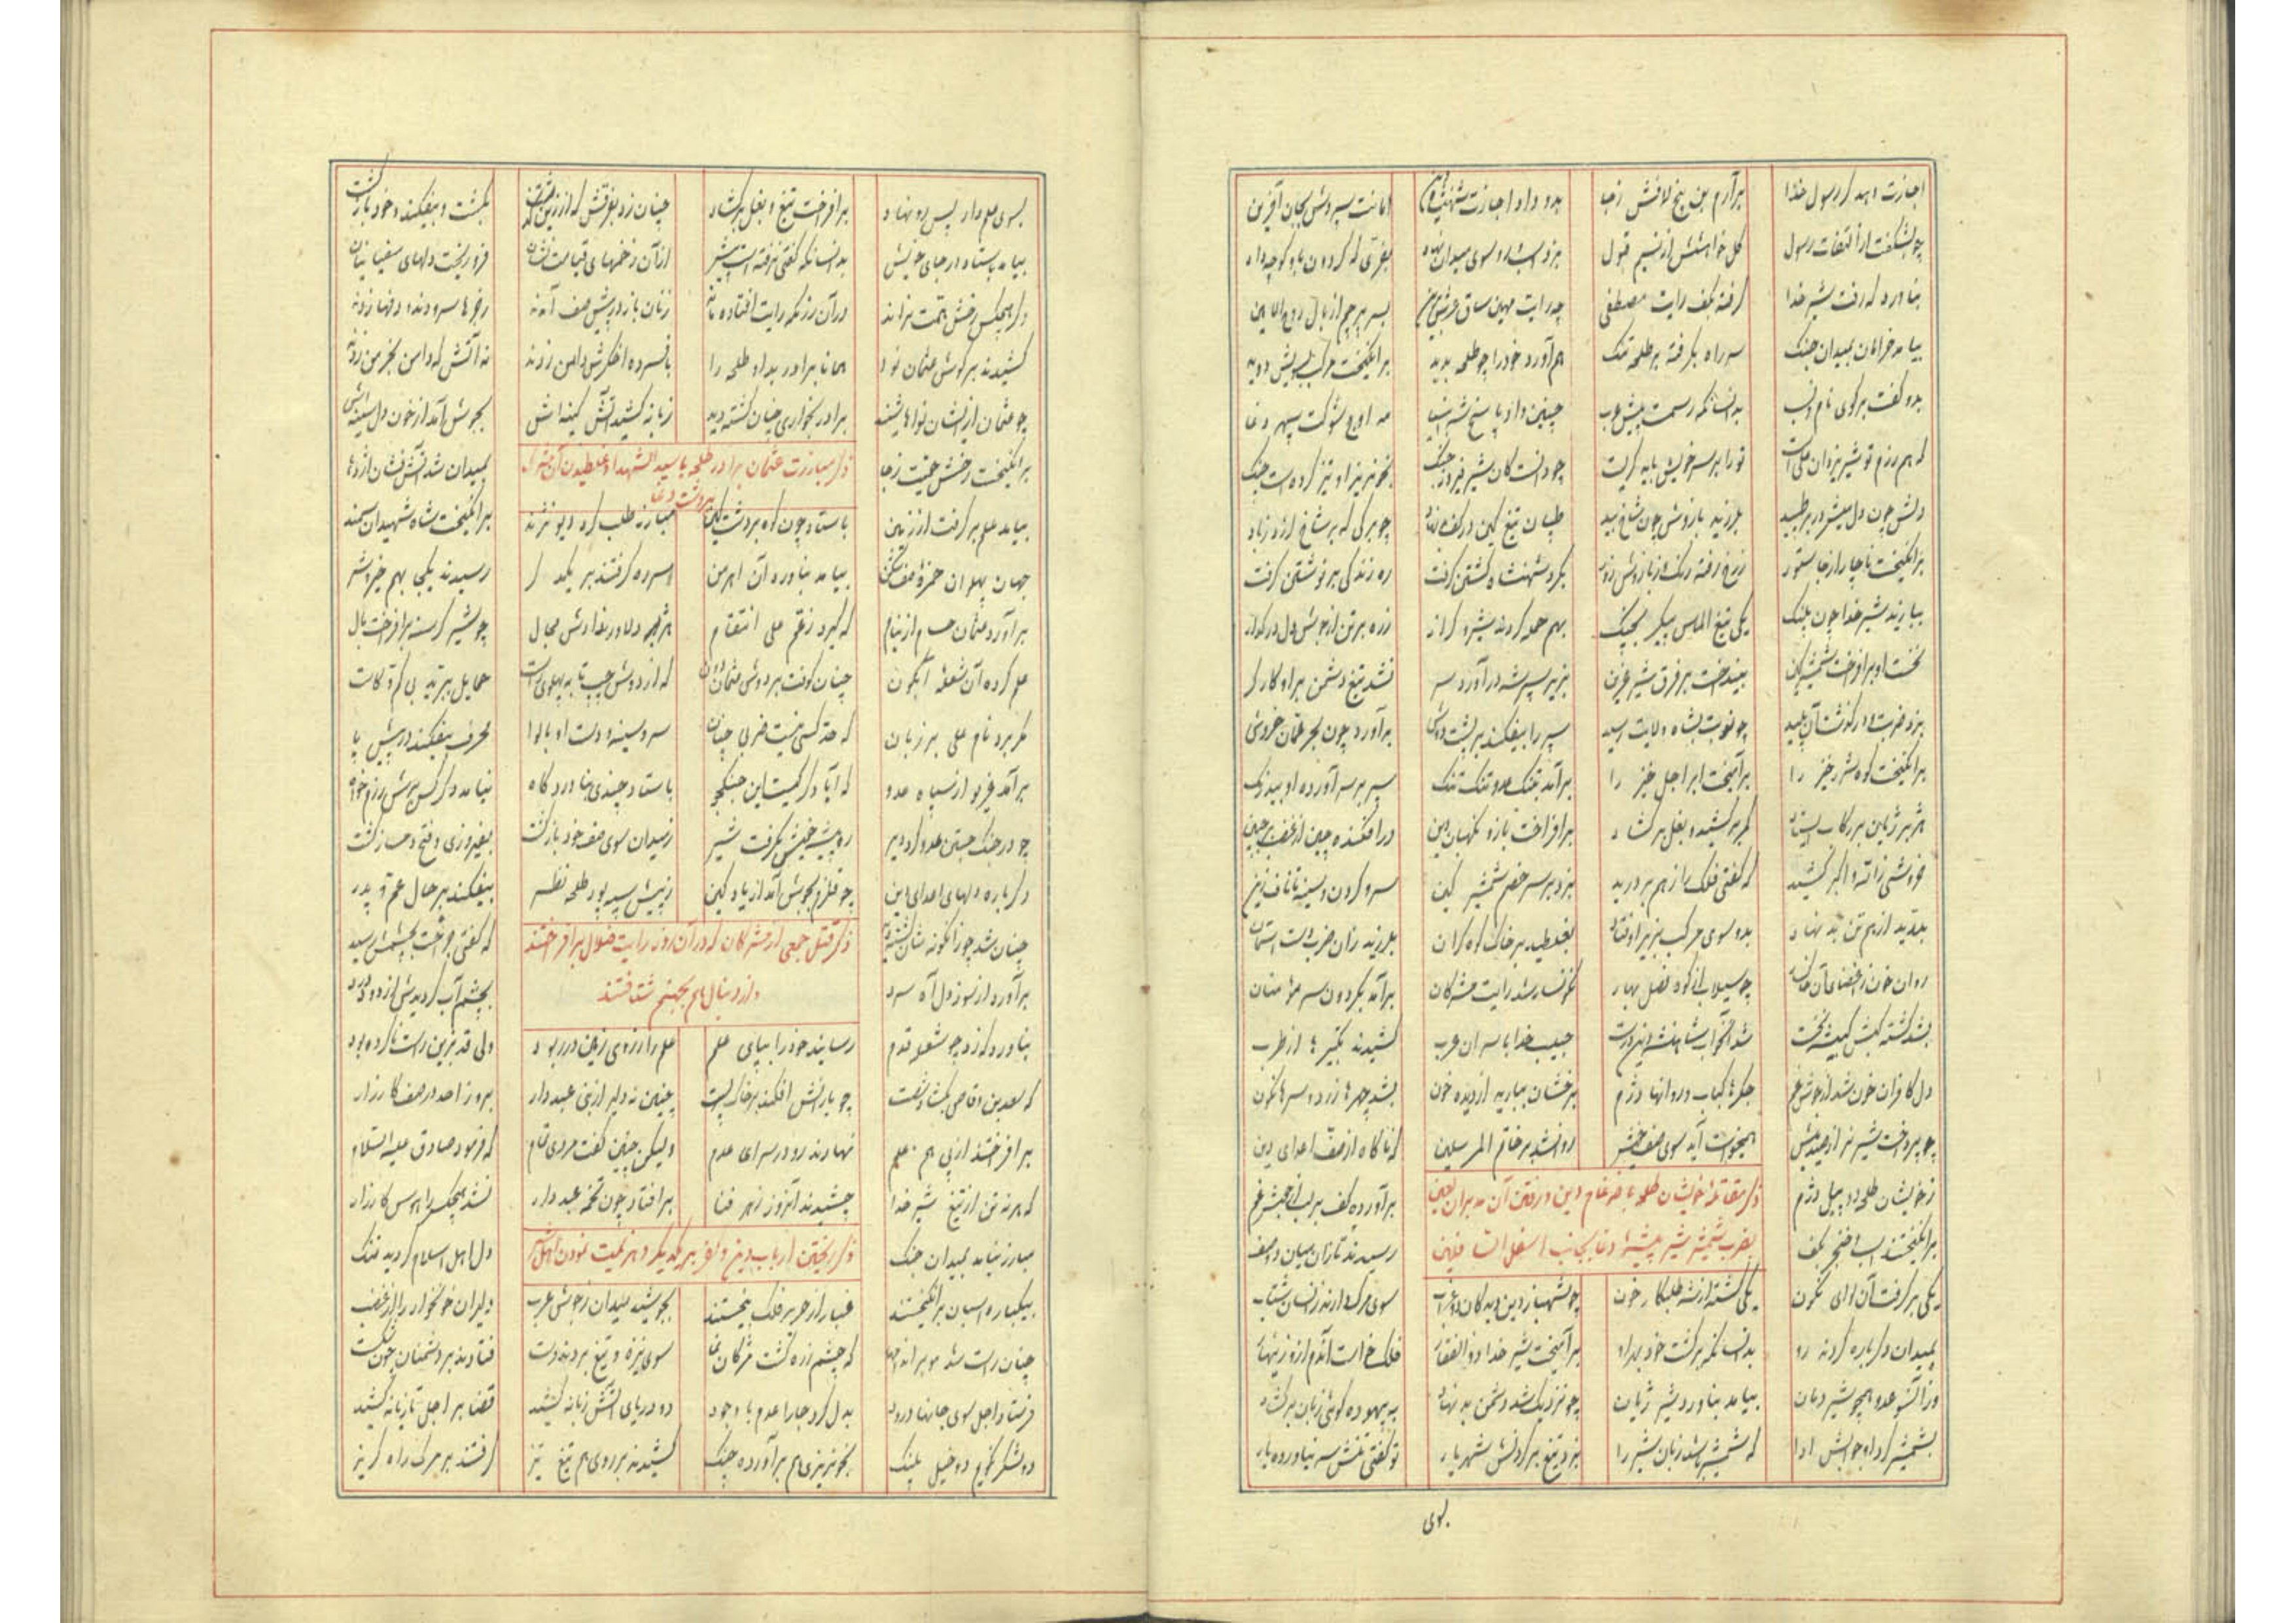 اجازت دهد گر رسول خدا برآرم بن بیخ لافش زجا بدو داد اجازت شهنشاه دین امانت سپردش بجان آفرین
چو بشکفت از التفات رسول گل خواهشش از نسیم قبول بزد اسب رو سوی میدان نهاد
بناورد گه رفت شیر خدا گرفته بکف رایت مصطفی چه رایت مهین ساق عرش برین بسر پرچم از بال روح الامین
بیامد خرامان بمیدان جنک سر راه بگرفته بر طلحه تنک هم آورد خود را چو طلحه بدید برانگیخت مرکب بسویش دوید
بدو گفت برگوی نام و نسب بدانسانکه رسمست پیش عرب چنین داد پاسخ شه انبیا مه اوج شوکت سپهر وغا
که هم رزم تو شیر یزدان علی است ترا بر سر خویش باید گریست چو دانست کان شیر فیروز جنک بخونریز او تیز کرده است چنک
دلش چون دل میش در بر طپید بلرزید بازوش چون شاخ بید طپان تیغ کین در کف بد نهاد چو برگی که بر شاخ لرزد زباد
برانگیخت ناچار از جا ستور زرخ رفته رنک و زبازوش زور بگرد شهنشاه گشتن گرفت ره زندگی بر نوشتن گرفت
ببازید شیر خدا چون پلنک یکی تیغ الماس پیکر بچنک بهم حمله کردند شیر و گراز زره بر تن از جوش دل در گداز
نخست او برافراخت شمشیر کین بینداخت بر فرق شیر عرین بزیر سپر شه درآورد سر نشد تیغ دشمن برو کارگر
بزد ضربت و درگذشت آن پلید چو نوبت بشاه ولایت رسید سپر را بیفکند بر پشت دوش برآورد چون بحر عمان خروش
برانگیخت کوه شرر خیز را برآمیخت ابر اجل خیز را برآمد بتنک عدو تنک تنک سپر بر سر آورد او بیدرنک
هژبر ژیان بر رکاب ایستاد کمر برکشید و بغل برگشاد برافراخت بازو نگهبان دین درافکنده چین از غضب بر جبین
خروشی زالله اکبر کشید که گفتی فلک را زهم بردرید بزد بر سر خصم شمشیر کین سر و گردن و سینه تا ناف زین
بغلطید بر خاک کوه گران بلرزید زان ضرب دست آسمان
روان خون ز اعضای آن چو سیلاب از کوه فصل بهار نگونسار شد رایت مشرکان برآمد بگردون سر مؤمنان
حبیب خدا با سران عرب کشیدند تکبیرها از طرب
دل کافران خون شد از جوش غم جگرها کباب و روانها دژم برخشان ببارید از دیده خون بشد چهرها زرد و سرها نگون
چو پرداخت شیر نر از صید خویش همیخواست آید سوی صف خویش روانشد بر خاتم المرسلین که ناگاه از صف اعدای دین
ذکر مقاتلهٔ خویشان طلحه با ضرغام دین و رفتن آن مدبران لعین
بضرب شمشیر شیر بیشهٔ وغا بجانب اسفل السافلین
زخویشان طلحه دو پیل دژم برآورده کف بر لب از جوش غم
برانگیختند اسب خنجر بکف رسیدند تازان میان دو صف
یکی برگرفت آن لوای نگون یکی گشته از شه طلبکار خون چو شهباز دین دید کان دو غراب سوی مرگ دارند زانسان شتاب
بمیدان دگر باره کردند رو بدانسانکه برگشت خود برآمیخت شیر خدا ذوالفقار
وزآنسو عدو همچو شیر دمان بیامد بناورد شیر ژیان چو نزدیک شد دشمن بد نهاد به بیهوده گوئی زبان برگشاد
بشمشیر کرد او جوابش ادا که شمشیر باشد زبان شیر را بزد تیغ بر گردنش شهریار تو گفتی تنش سر نیاورده بار
بوی
بسوی علمدار پس رو نهاد برافراخت تیغ و بغل برگشاد چنان زد بفرقش که از زین بکشت و بیفکند و خود بازگشت
بیامد باستاد بر جای خویش بدانسانکه گفتی نرفتست پیش از آن زخمهای قیامت نشان فرو ریخت دلهای سفیانیان
دگر هیچکس رخش همت نراند در آن رزمگه رایت افتاده ماند زنان باز در پیش صف آمدند رجزها سرودند و دفها زدند
کشیدند بر گوش عثمان نوا همانا برادر بد او طلحه را بافسرده اخگرش دامن زدند نه آتش که دامن بخرمن زدند
چو عثمان از ایشان نواها شنید برادر بخواری چنان کشته دید زبانه کشید آتش کینه اش بجوش آمد از خون دل سینه اش
ذکر مبارزت عثمان برادر طلحه با سید الشهدا و غلطیدن آن
بر دشت وغا
برانگیخت رخش حمیت زجا بمیدان شد آتش فشان اژدها
بیامد علم برگرفت از زمین باستاد چون کوه بر دشت کین مبارز طلب کرد دیو نژند برانگیخت شاه شهیدان سمند
جهان پهلوان حمزهٔ صف شکن بیامد بناورد آن اهرمن سر ره گرفتند بر یکدگر رسیدند یکجا بهم خیر و شر
برآورد عثمان حسام از نیام که گیرد زعم علی انتقام هژبر دلاور ندادش مجال چو شیر گرسنه برافراخت یال
علم کرد آن شعلهٔ آبگون چنان کوفت بر دوش عثمان دون که از دوش چپ تا به پهلوی راست حمایل ببرید بی کم و کاست
مگر برد نام علی بر زبان که حد کسی نیست ضربی چنان سر و سینه و دست او با لوا محرف بیفکند در پیش پا
برآمد غریو از سپاه عدو که آیا دگر کیست این جنگجو باستاد چندی بناوردگاه نیامد دگر کس برش رزمخواه
چو در جنک جستن عدو کرد دیر ره بیشهٔ خویش بگرفت شیر زمیدان سوی صف خود بازگشت بفیروزی و فتح دمساز گشت
دگر باره دلهای اعدای دین چو قلزم بجوش آمد از یاد کین زپیش سپه پور طلحه نظر بیفکند بر حال عم و پدر
ذکر قتل جمعی از مشرکان که در آن روز رایت ضلال برافراختند
و از دنبال هم بجهنم شتافتند
که گفتی بچشمش رسید
برآورد از سوز دل آه سرد بچشم آب گردیدش از دود درد
بناورد گه زد چو شعله قدم رسانید خود را بپای علم علم را ز روی زمین در ربود ولی قد بزین راست ناکرده بود
که سعد بن وقاص بگشاد شست چو بارنش افکند بر خاک پست چنین نه دلیر از بنی عبددار بروز احد در صف کارزار
برافراختند از پی هم علم نهادند رو در سرای عدم ولیکن چنین گفت مردی تمام که فرمود صادق علیه السلام
که هر نه تن از تیغ شیر خدا چشیدند آنروز زهر فنا برافتاد چون تخمهٔ عبددار نشد هیچکس را هوس کارزار
ذکر ریختن ارباب دین و کفر بر یکدیگر و هزیمت نمودن اهل
مبارز نیامد بمیدان جنک دل اهل اسلام گردید تنک
بیکباره اسبان برانگیختند غبار از حر بر فلک بیختند بجوشید میدان زجوش عرب دلیران خونخوار را از غضب
چنان راست شد مو بر اندامها که چشم زره گشت مژگان نما سوی نیزه و تیغ بردند دست فتادند بر دشمنان
فرستاد اجل سوی جانها درود بدل کرد جا را عدم با وجود دو دریای آتش زبانه کشید قضا بر اجل تازیانه کشید
دو لشکر نگویم دو خیل پلنک بخونریزی هم برآورده چنک کشیدند بر روی هم تیغ تیز گرفتند بر مرگ راه گریز